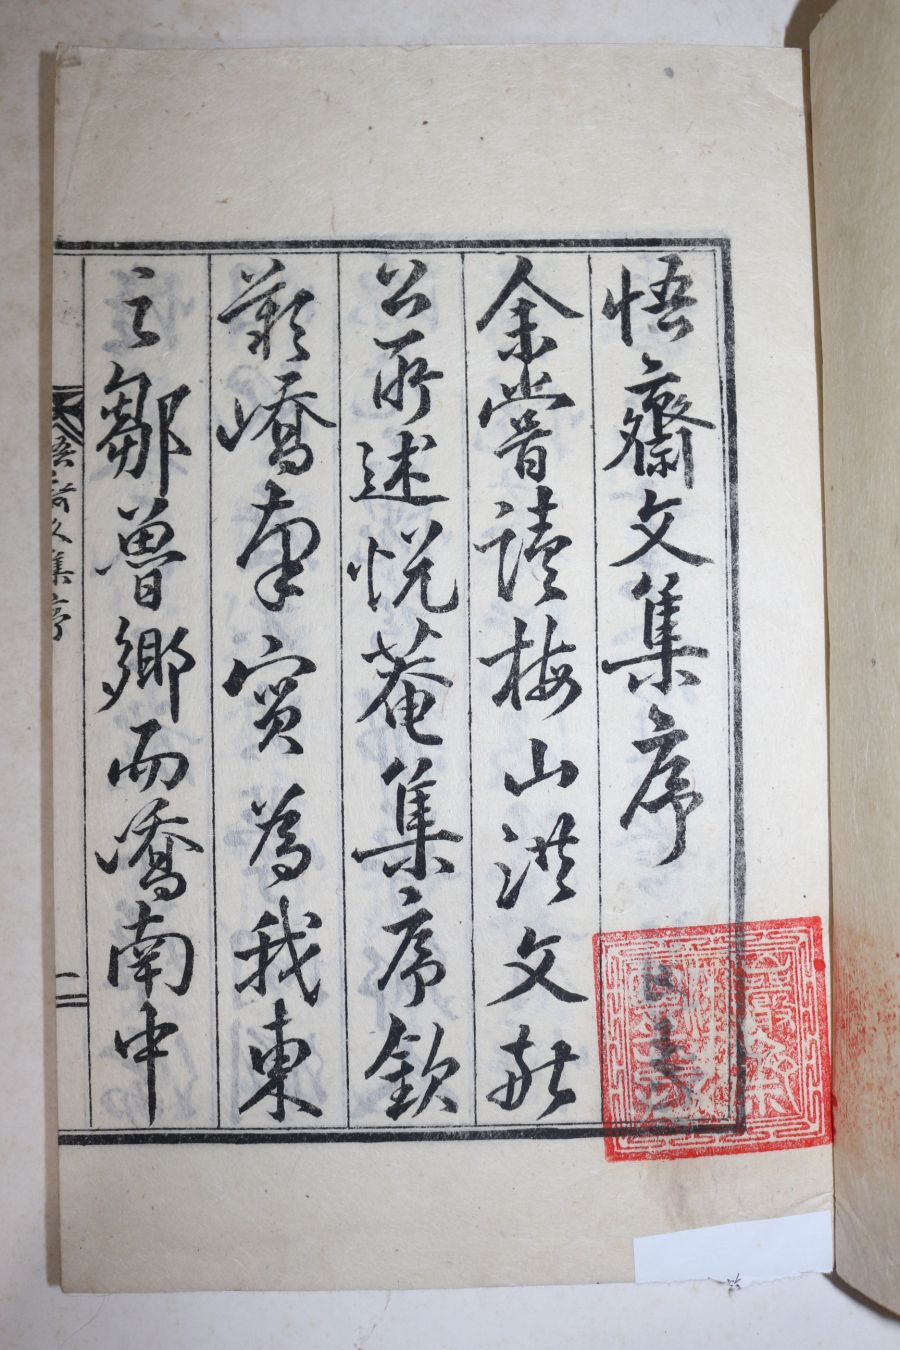 悟齋文集序
余嘗讀梅山洪文敬
公所述悅菴集序欽
歎嶠南實為我東
之鄒魯鄉而嶠南中
悟齋文集序